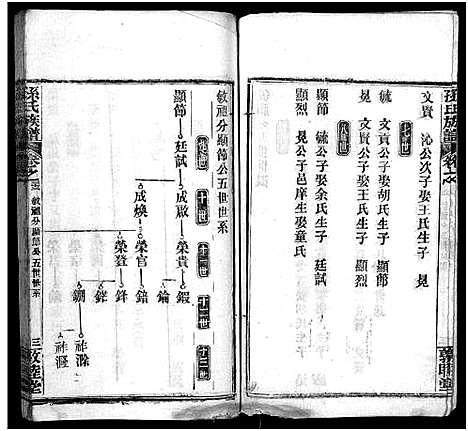 孫氏族譜
文賢 沁公次子娶王氏生子 晃
七世
毓 文賢公子娶胡氏生子 顯節
晃 文賢公子娶王氏生子 顯烈
八世
顯節 毓公子娶余氏生子 廷試
顯烈 晃公子邑庠生娶童氏
敘睦堂
敏祖分顯節公五世世系
十世
十一世
十二世
十三世
顯節
廷試
成啟
榮貴
鍜
錀
成煥
榮官
錇
榮登
鋒
鋰
鐦
祚滁
祚漄
孫氏族譜
敏祖分顯節公五世世系
三敦睦堂